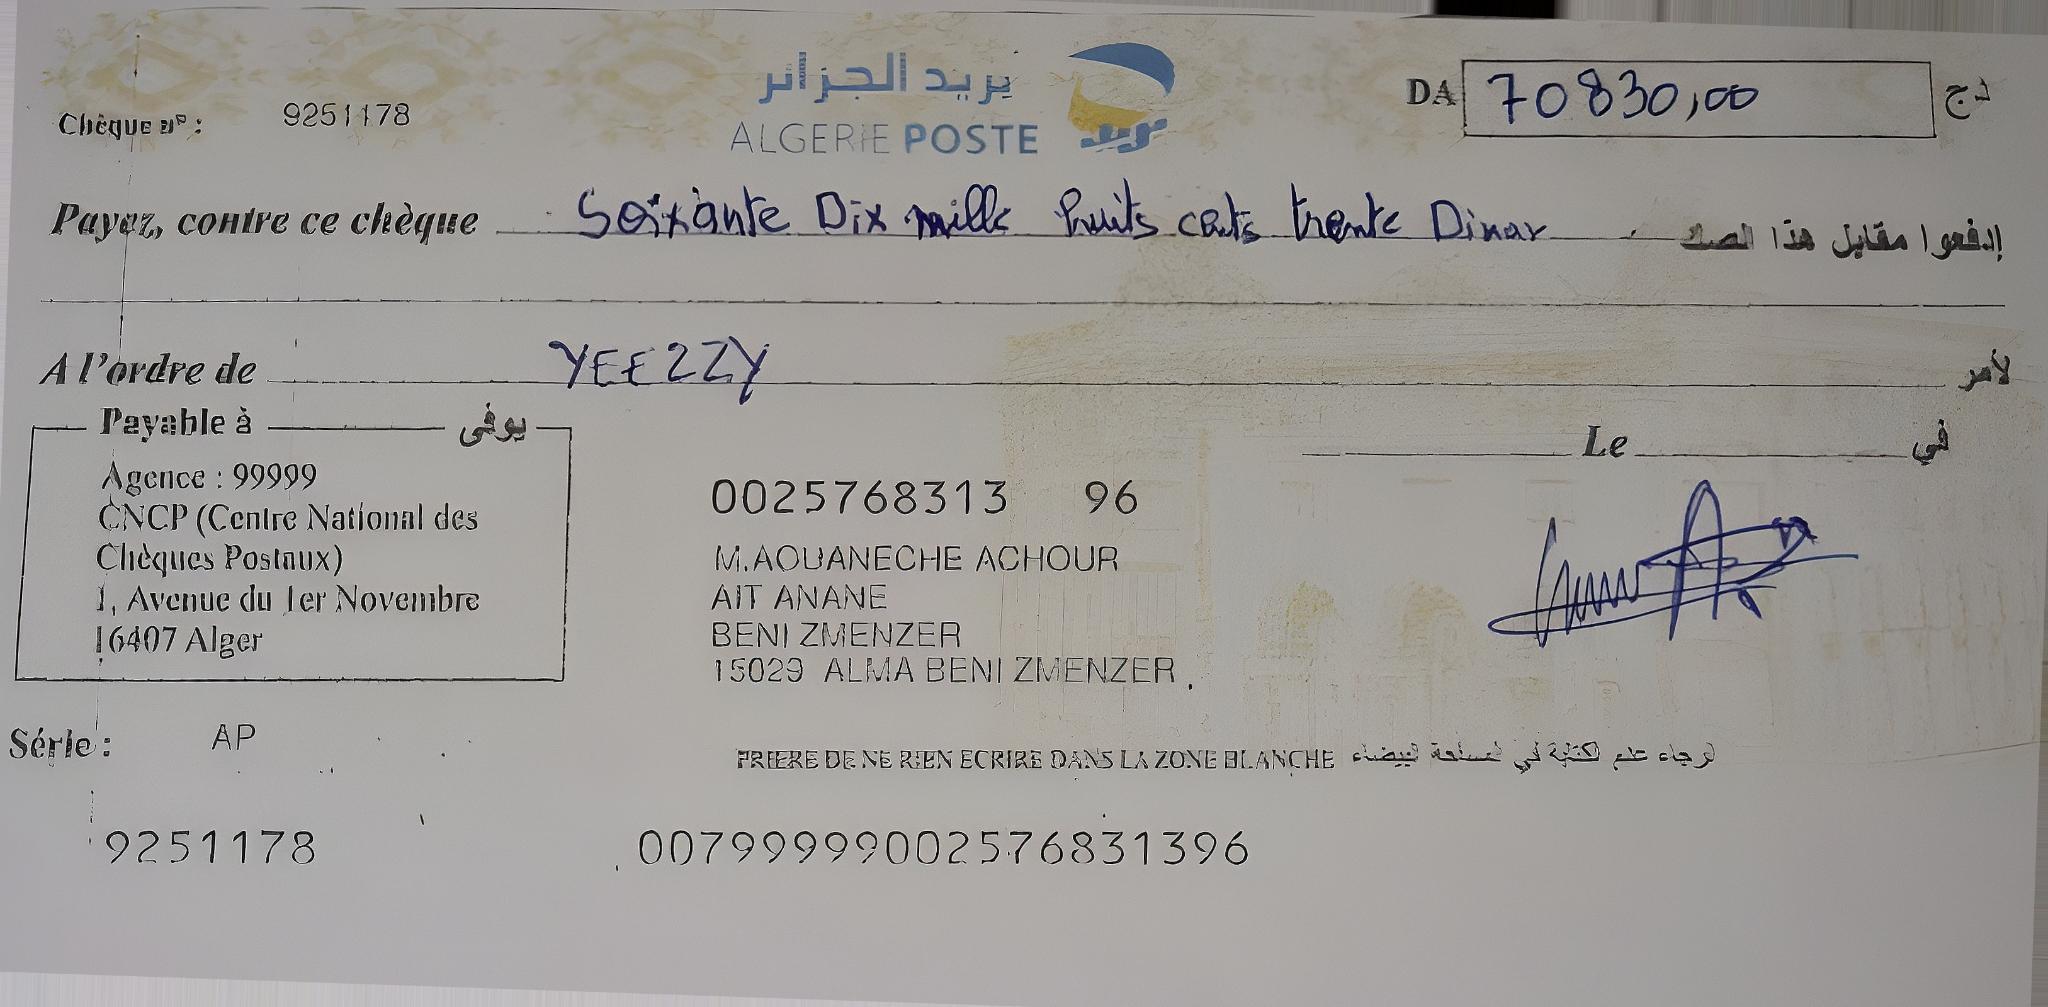 بريد الجزائر
ALGERIE POSTE
بريد
Chèque nº : 9251178
DA 70830,00 دج
Payez, contre ce chèque Soixante Dix mille huits cents trente Dinar إدفعوا مقابل هذا الصك
A l'ordre de YEEZZY لأمر
Payable à يوفى
Agence : 99999
CNCP (Centre National des
Chèques Postaux)
1, Avenue du 1er Novembre
16407 Alger
Le في
0025768313 96
M.AOUANECHE ACHOUR
AIT ANANE
BENI ZMENZER
15029 ALMA BENI ZMENZER
Série : AP
PRIERE DE NE RIEN ECRIRE DANS LA ZONE BLANCHE الرجاء عدم الكتابة في المساحة البيضاء
9251178 00799999002576831396